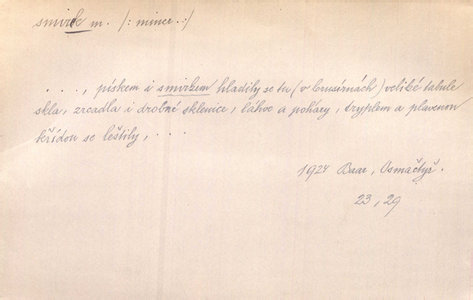 smirek m. /: miner. :/
. . . ., pískem i smirkem hladily se tu (v brusírnách) veliké tabule
skla, zrcadla i drobné sklenice, láhve a poháry, tryplem a plavenou
křídou se leštily, . . . .
1924 Baar, Osmačtyř.
23, 29